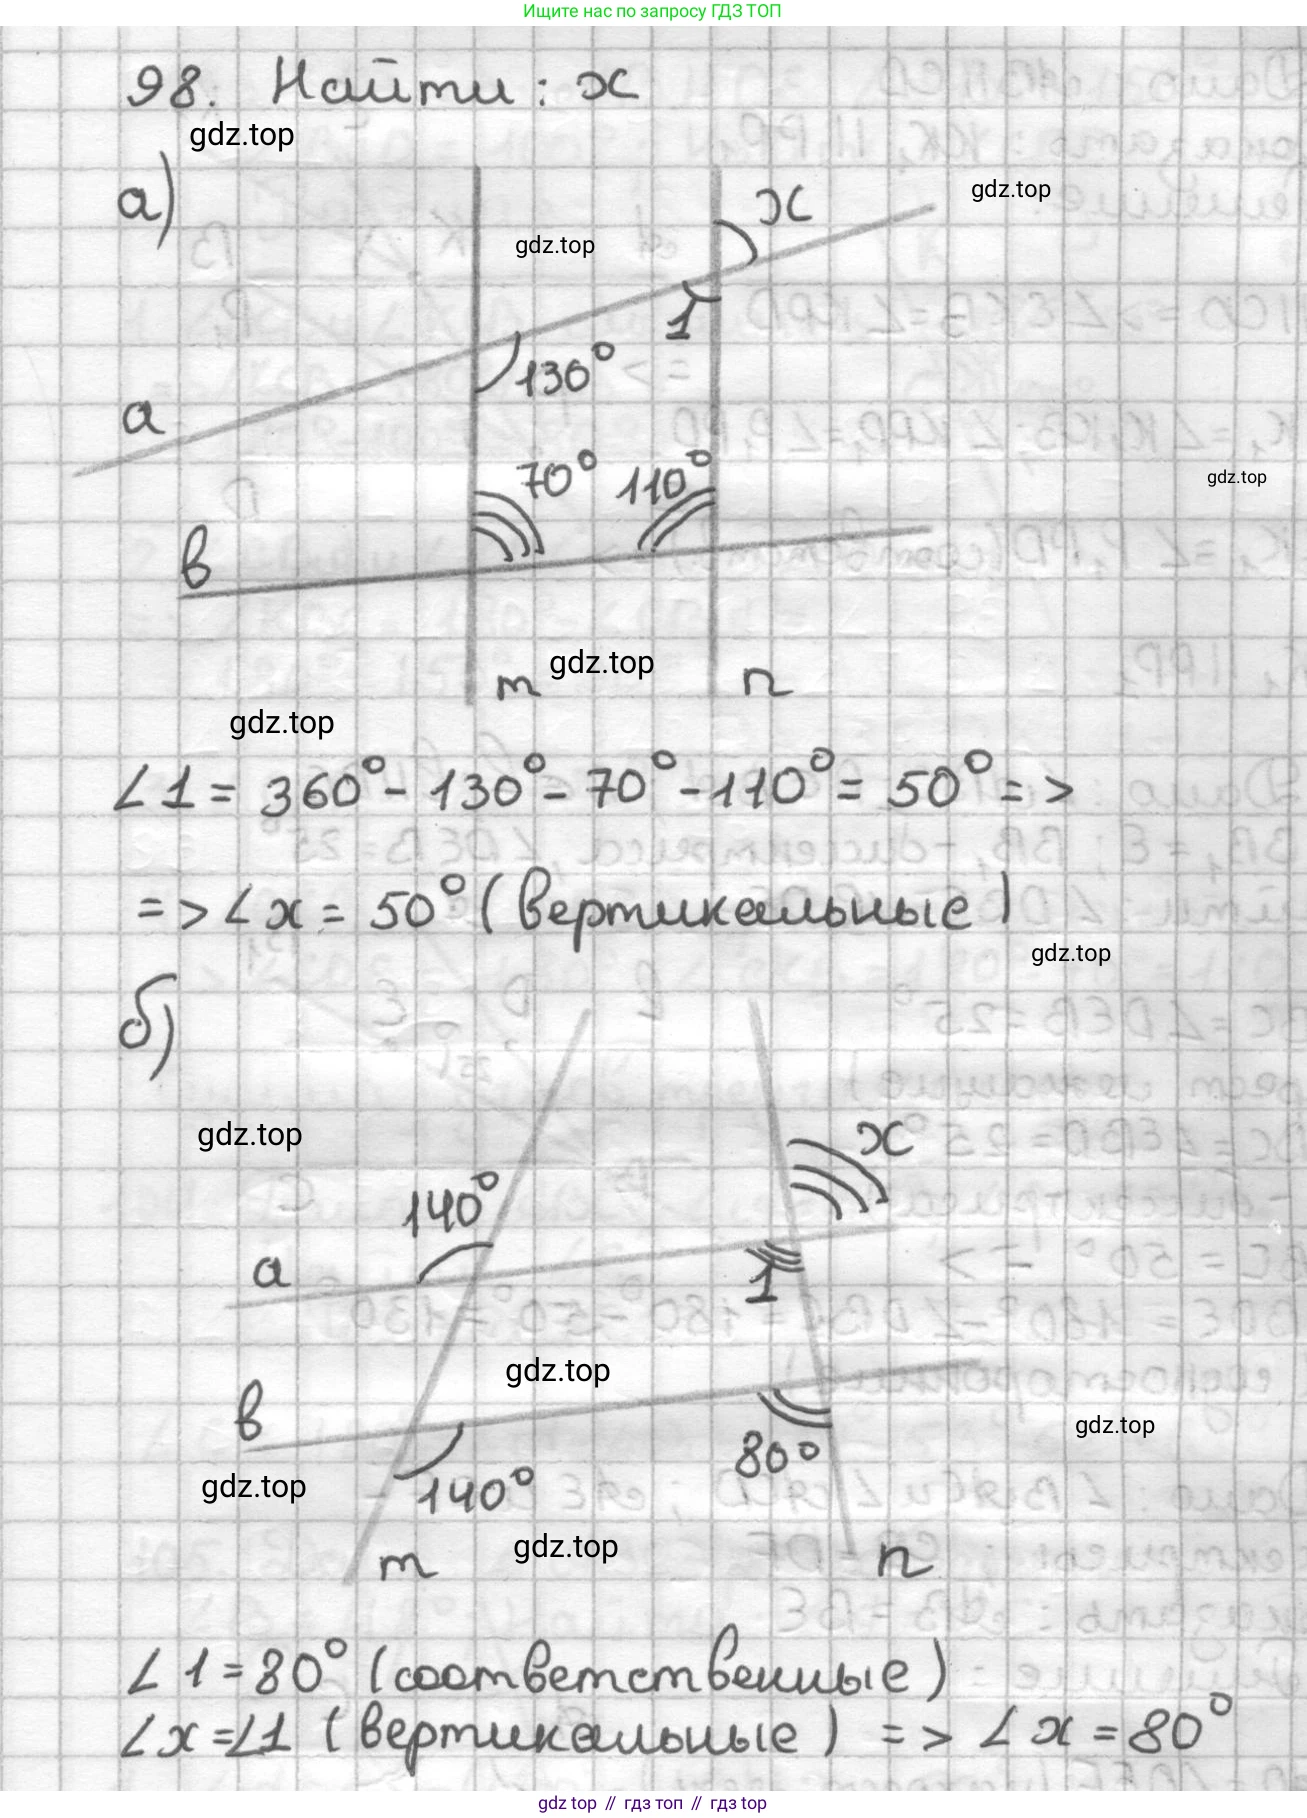 Ищите нас по запросу ГДЗ ТОП
98. Найти: x
gdz.top
а)
x
gdz.top
gdz.top
1
130°
a
70° 110°
gdz.top
в
gdz.top
m n
gdz.top
∠1 = 360° - 130° - 70° - 110° = 50° =>
=> ∠x = 50° (вертикальные)
gdz.top
б)
gdz.top
x
140°
a
1
gdz.top
в
gdz.top
80°
gdz.top
140°
gdz.top
m n
∠1 = 80° (соответственные)
∠x = ∠1 (вертикальные) => ∠x = 80°
gdz top // гдз топ // gdz top